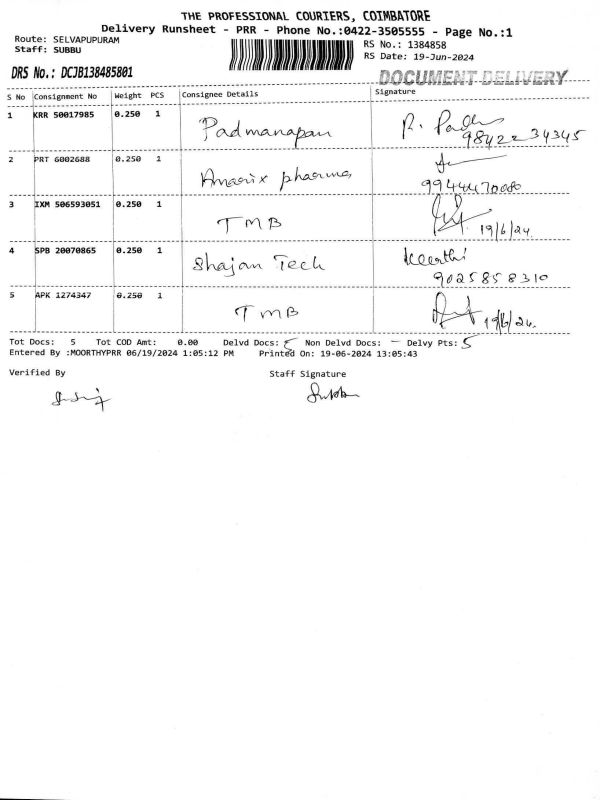 THE PROFESSIONAL COURIERS, COIMBATORE
Delivery Runsheet - PRR - Phone No.:0422-3505555 - Page No.:1
Route: SELVAPUPURAM
Staff: SUBBU
RS No.: 1384858
RS Date: 19-Jun-2024
DRS No.: DCJB138485801
DOCUMENT DELIVERY
S No Consignment No Weight PCS Consignee Details Signature
1 KRR 50017985 0.250 1 Padmanapan
9842234345
2 PRT 6002688 0.250 1 Amarix pharma
3 IXM 506593051 0.250 1 TMB 19/6/24.
4 SPB 20070865 0.250 1 Shajan Tech Keerthi
9025858310
5 APK 1274347 0.250 1 TMB 19/6/24.
Tot Docs: 5 Tot COD Amt: 0.00 Delvd Docs: 5 Non Delvd Docs: - Delvy Pts: 5
Entered By :MOORTHYPRR 06/19/2024 1:05:12 PM Printed On: 19-06-2024 13:05:43
Verified By Staff Signature